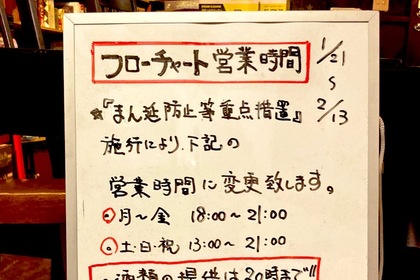 フローチャート営業時間
1/21
S
2/13
☆『まん延防止等重点措置』
施行により、下記の
営業時間に変更致します。
月〜金 18:00〜21:00
土・日・祝 13:00〜21:00
・酒類の提供は20時まで!!